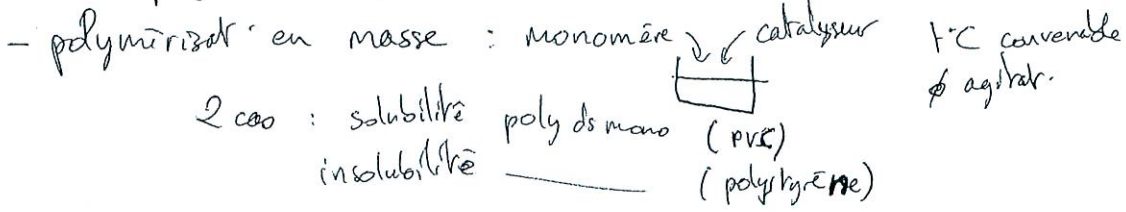 - polymérizat° en masse : monomère catalyseur t°C convenable
∅ agitat°.
2 cas : solubilité poly ds mono (PVC)
insolubilité ——— (polystyrène)